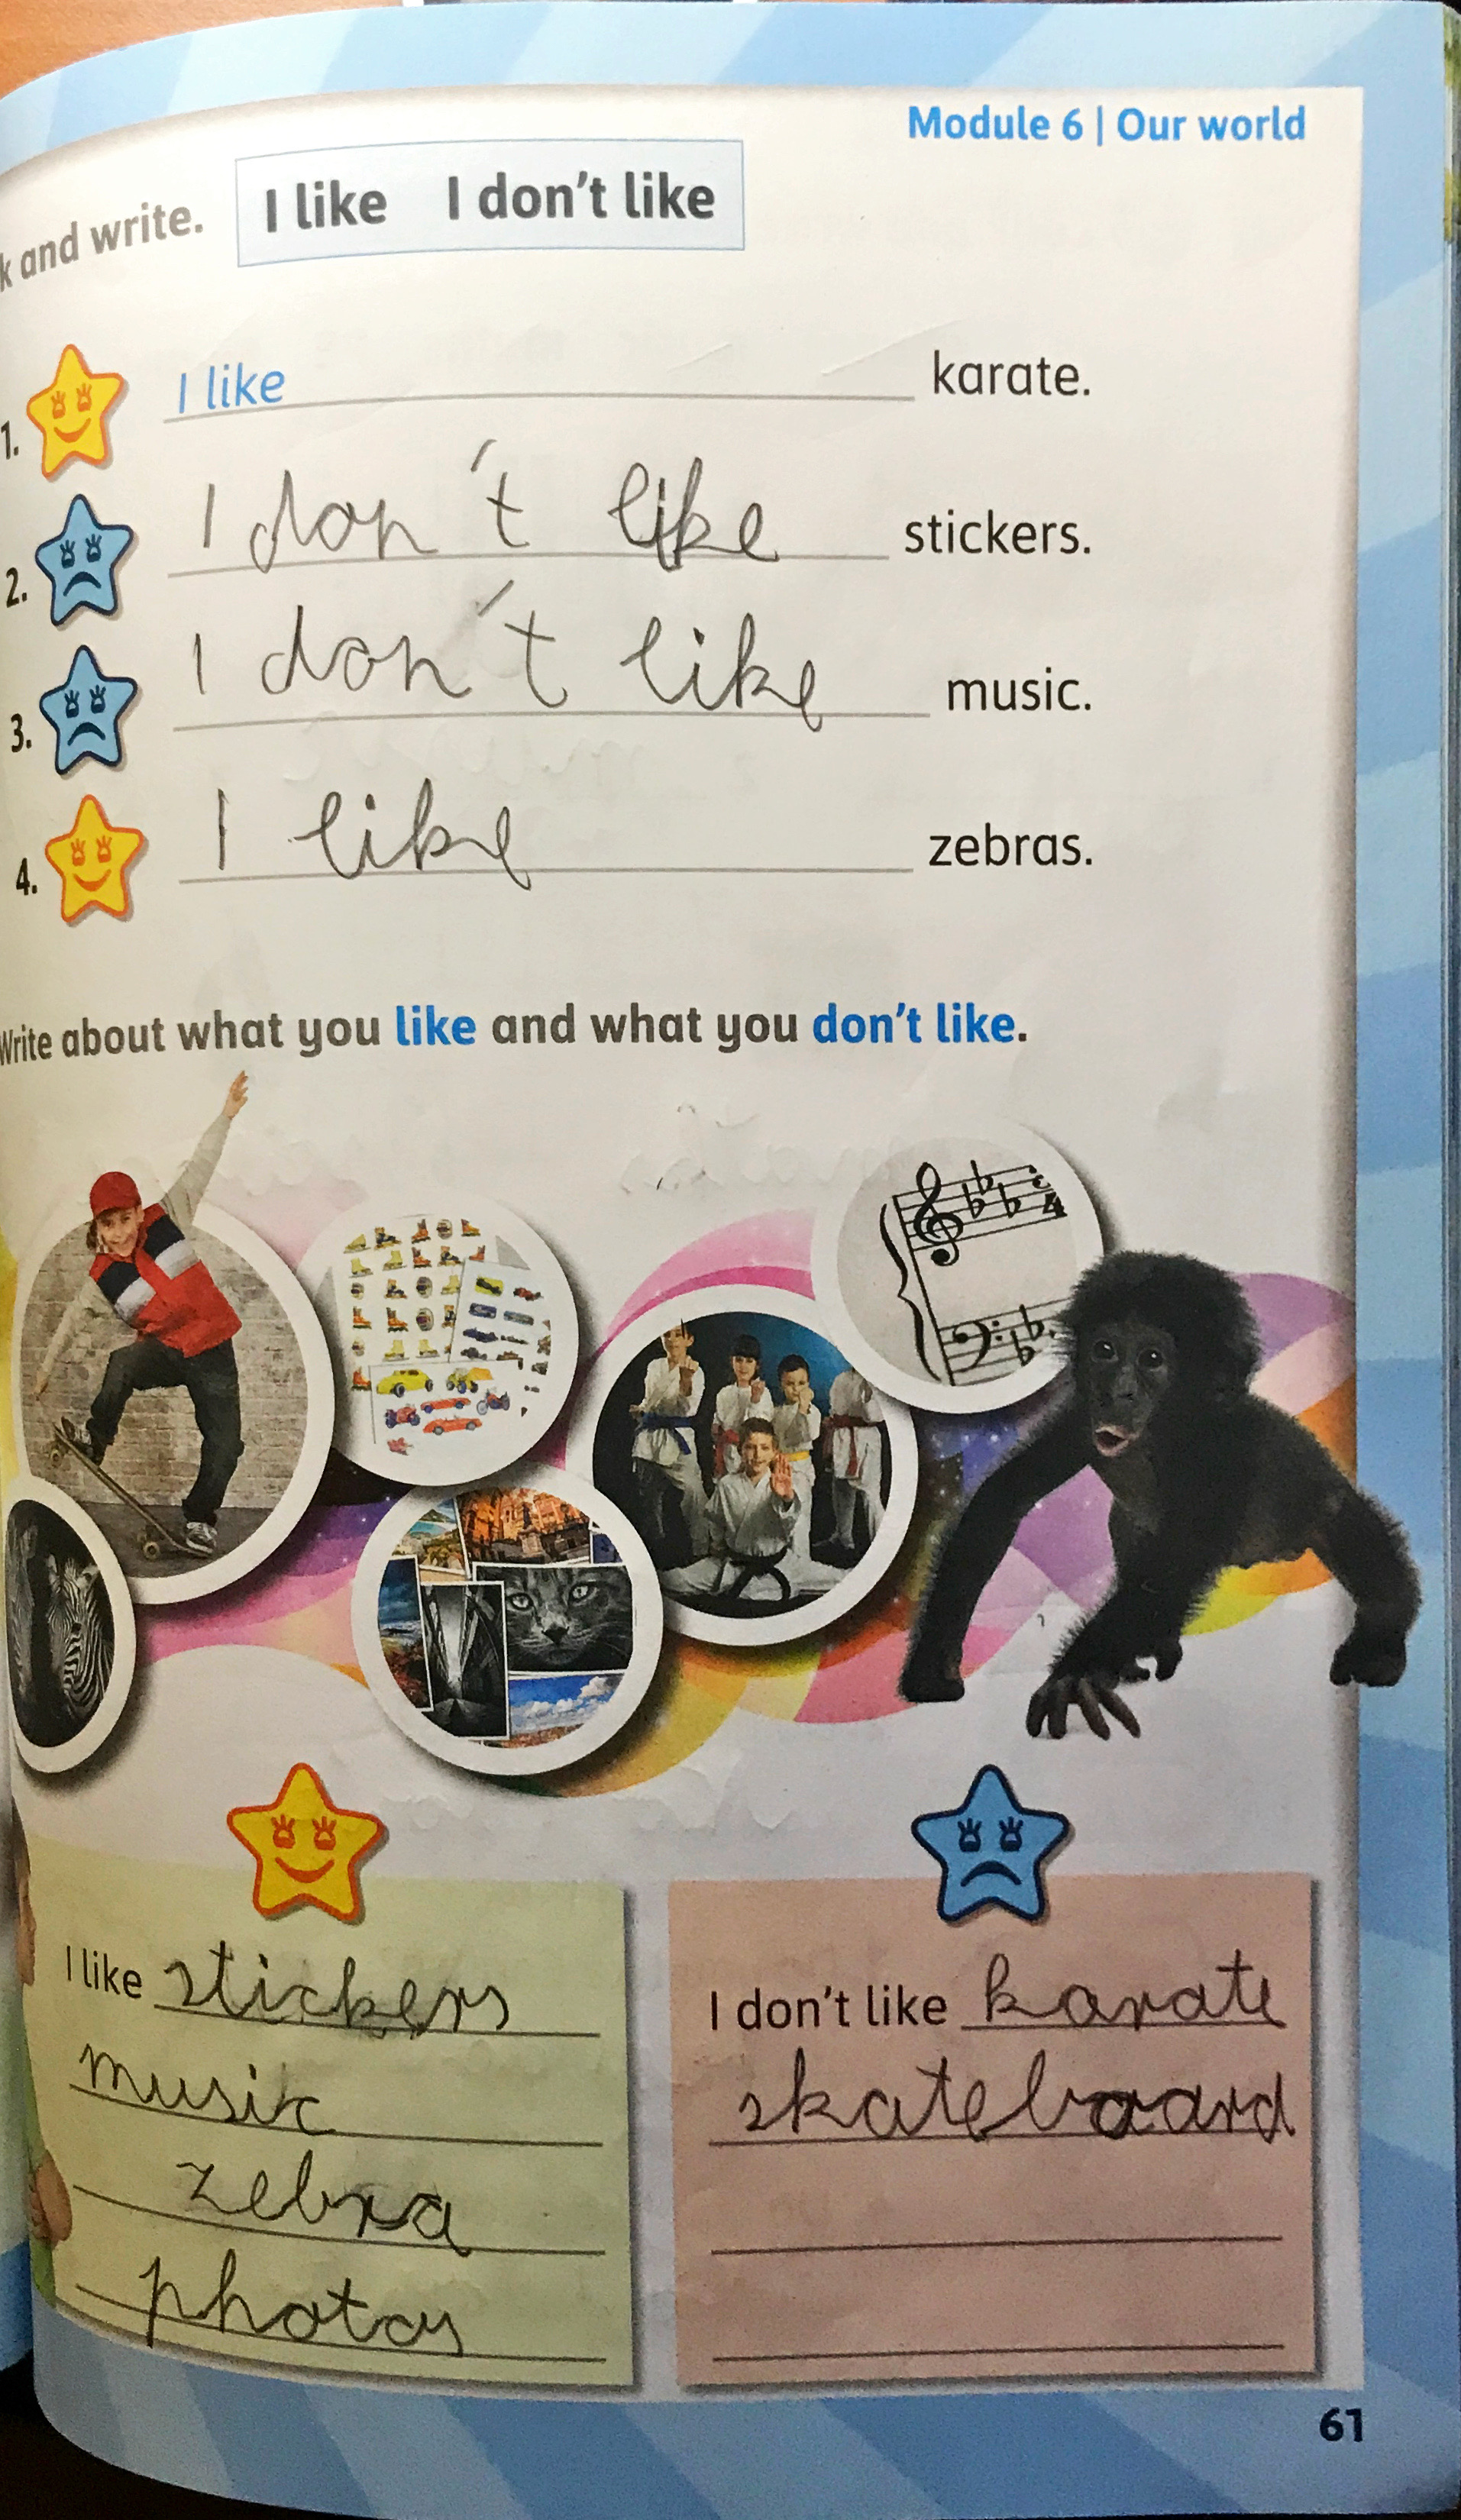 Module 6 | Our world
k and write. I like I don't like
1. I like karate.
2. I don't like stickers.
3. I don't like music.
4. I like zebras.
Write about what you like and what you don't like.
4
I like stickers
music
zebra
photos
I don't like karate
skateboard
61